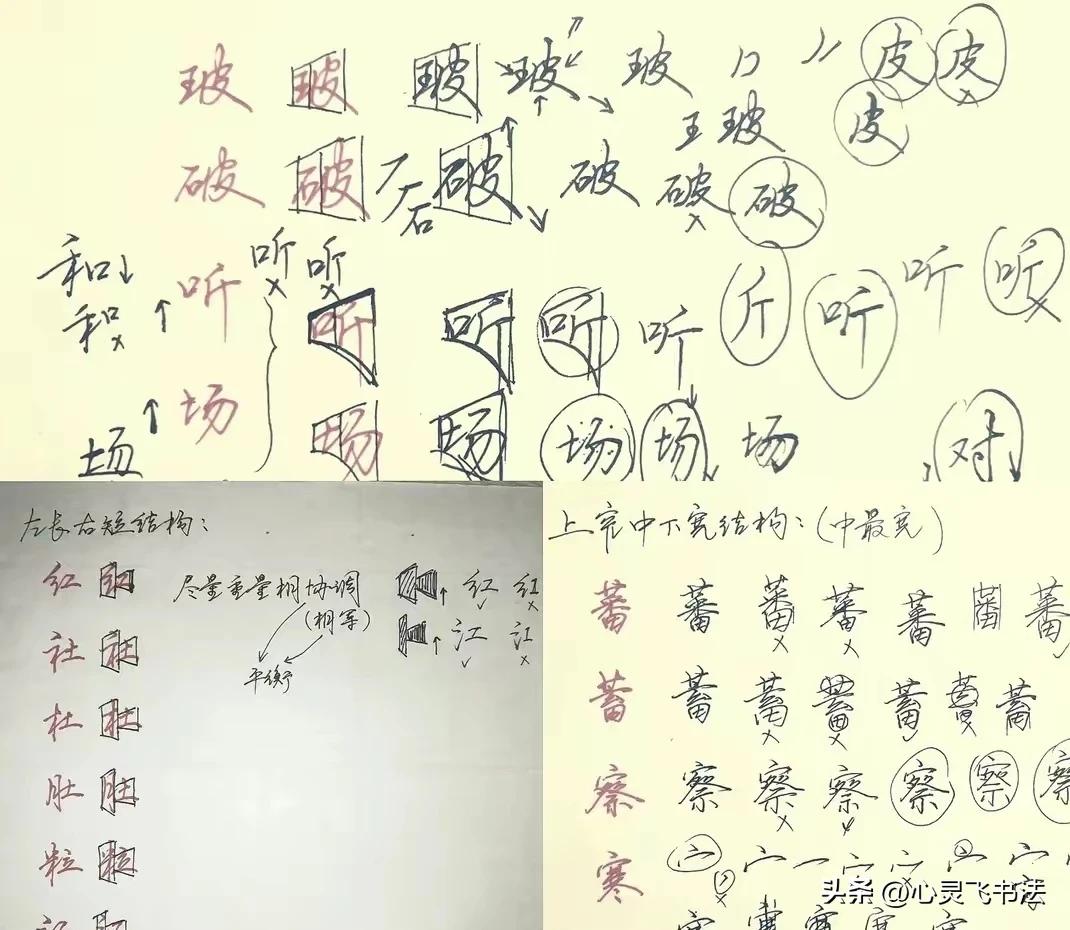 玻 玻 玻 玻 玻 皮 皮
王 玻 皮
破 破 石 破 破 破 破
和 听 听
和 听 听 听 听 听 斤 听 听 听
场 场 场 场 场 场 场 场 对
左长右短结构：
红 红 尽量重量相协调 红 红
(相等) 江 江
平衡
社 社
杜 杜
肚 肚
粒 粒
上宽中下宽结构：(中最宽)
蕃 蕃 蕃 蕃 蕃 蕃 蕃
蓄 蓄 蓄 蓄 蓄 蓄 蓄
察 察 察 察 察 察 察
寒 宀 宀 宀 宀 宀 宀
头条 @心灵飞书法